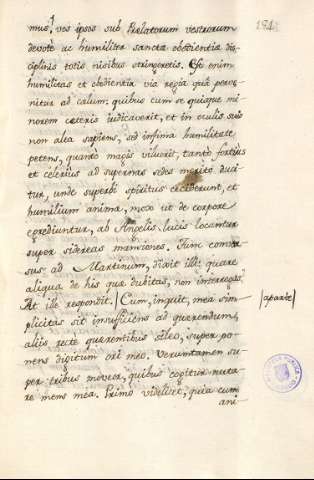 194.
mus! vos ipsos sub Prælatorum vestrorum
devotè ac humiliter sanctæ obedientiæ dis-
ciplinis totis nisibus stringeretis. Est enim
humilitas et obedientia via regia quâ perve-
nitur ad cælum. quibus cum se quisque mi
norem ceteris iudicaverit, et in oculis suis
non alta sapiens, sed infima humilitate
petens, quantò magis viluerit, tantò fortius
et celerius ad supernas sedes meritò duci
tur, unde superbi spiritus ceciderunt, et
humilium anima, mox ut de corpore
egrediuntur, ab Angelis lucis locantur
super sidereas mansiones. Tum conver
sus ad Martinum, dixit illi: quare
aliqua de his quæ dubitas, non interrogas?
At ille respondit. | Cum, inquit, mea sim
plicitas sit insufficiens ad quærendum,
aliis rectè quærentibus sileo, super po-
nens digitum ori meo. Verumtamen su-
per tribus moveor, quibus cogitur nuta-
re mens mea. Primò videlicet, quia cum
ani-
|aparte|